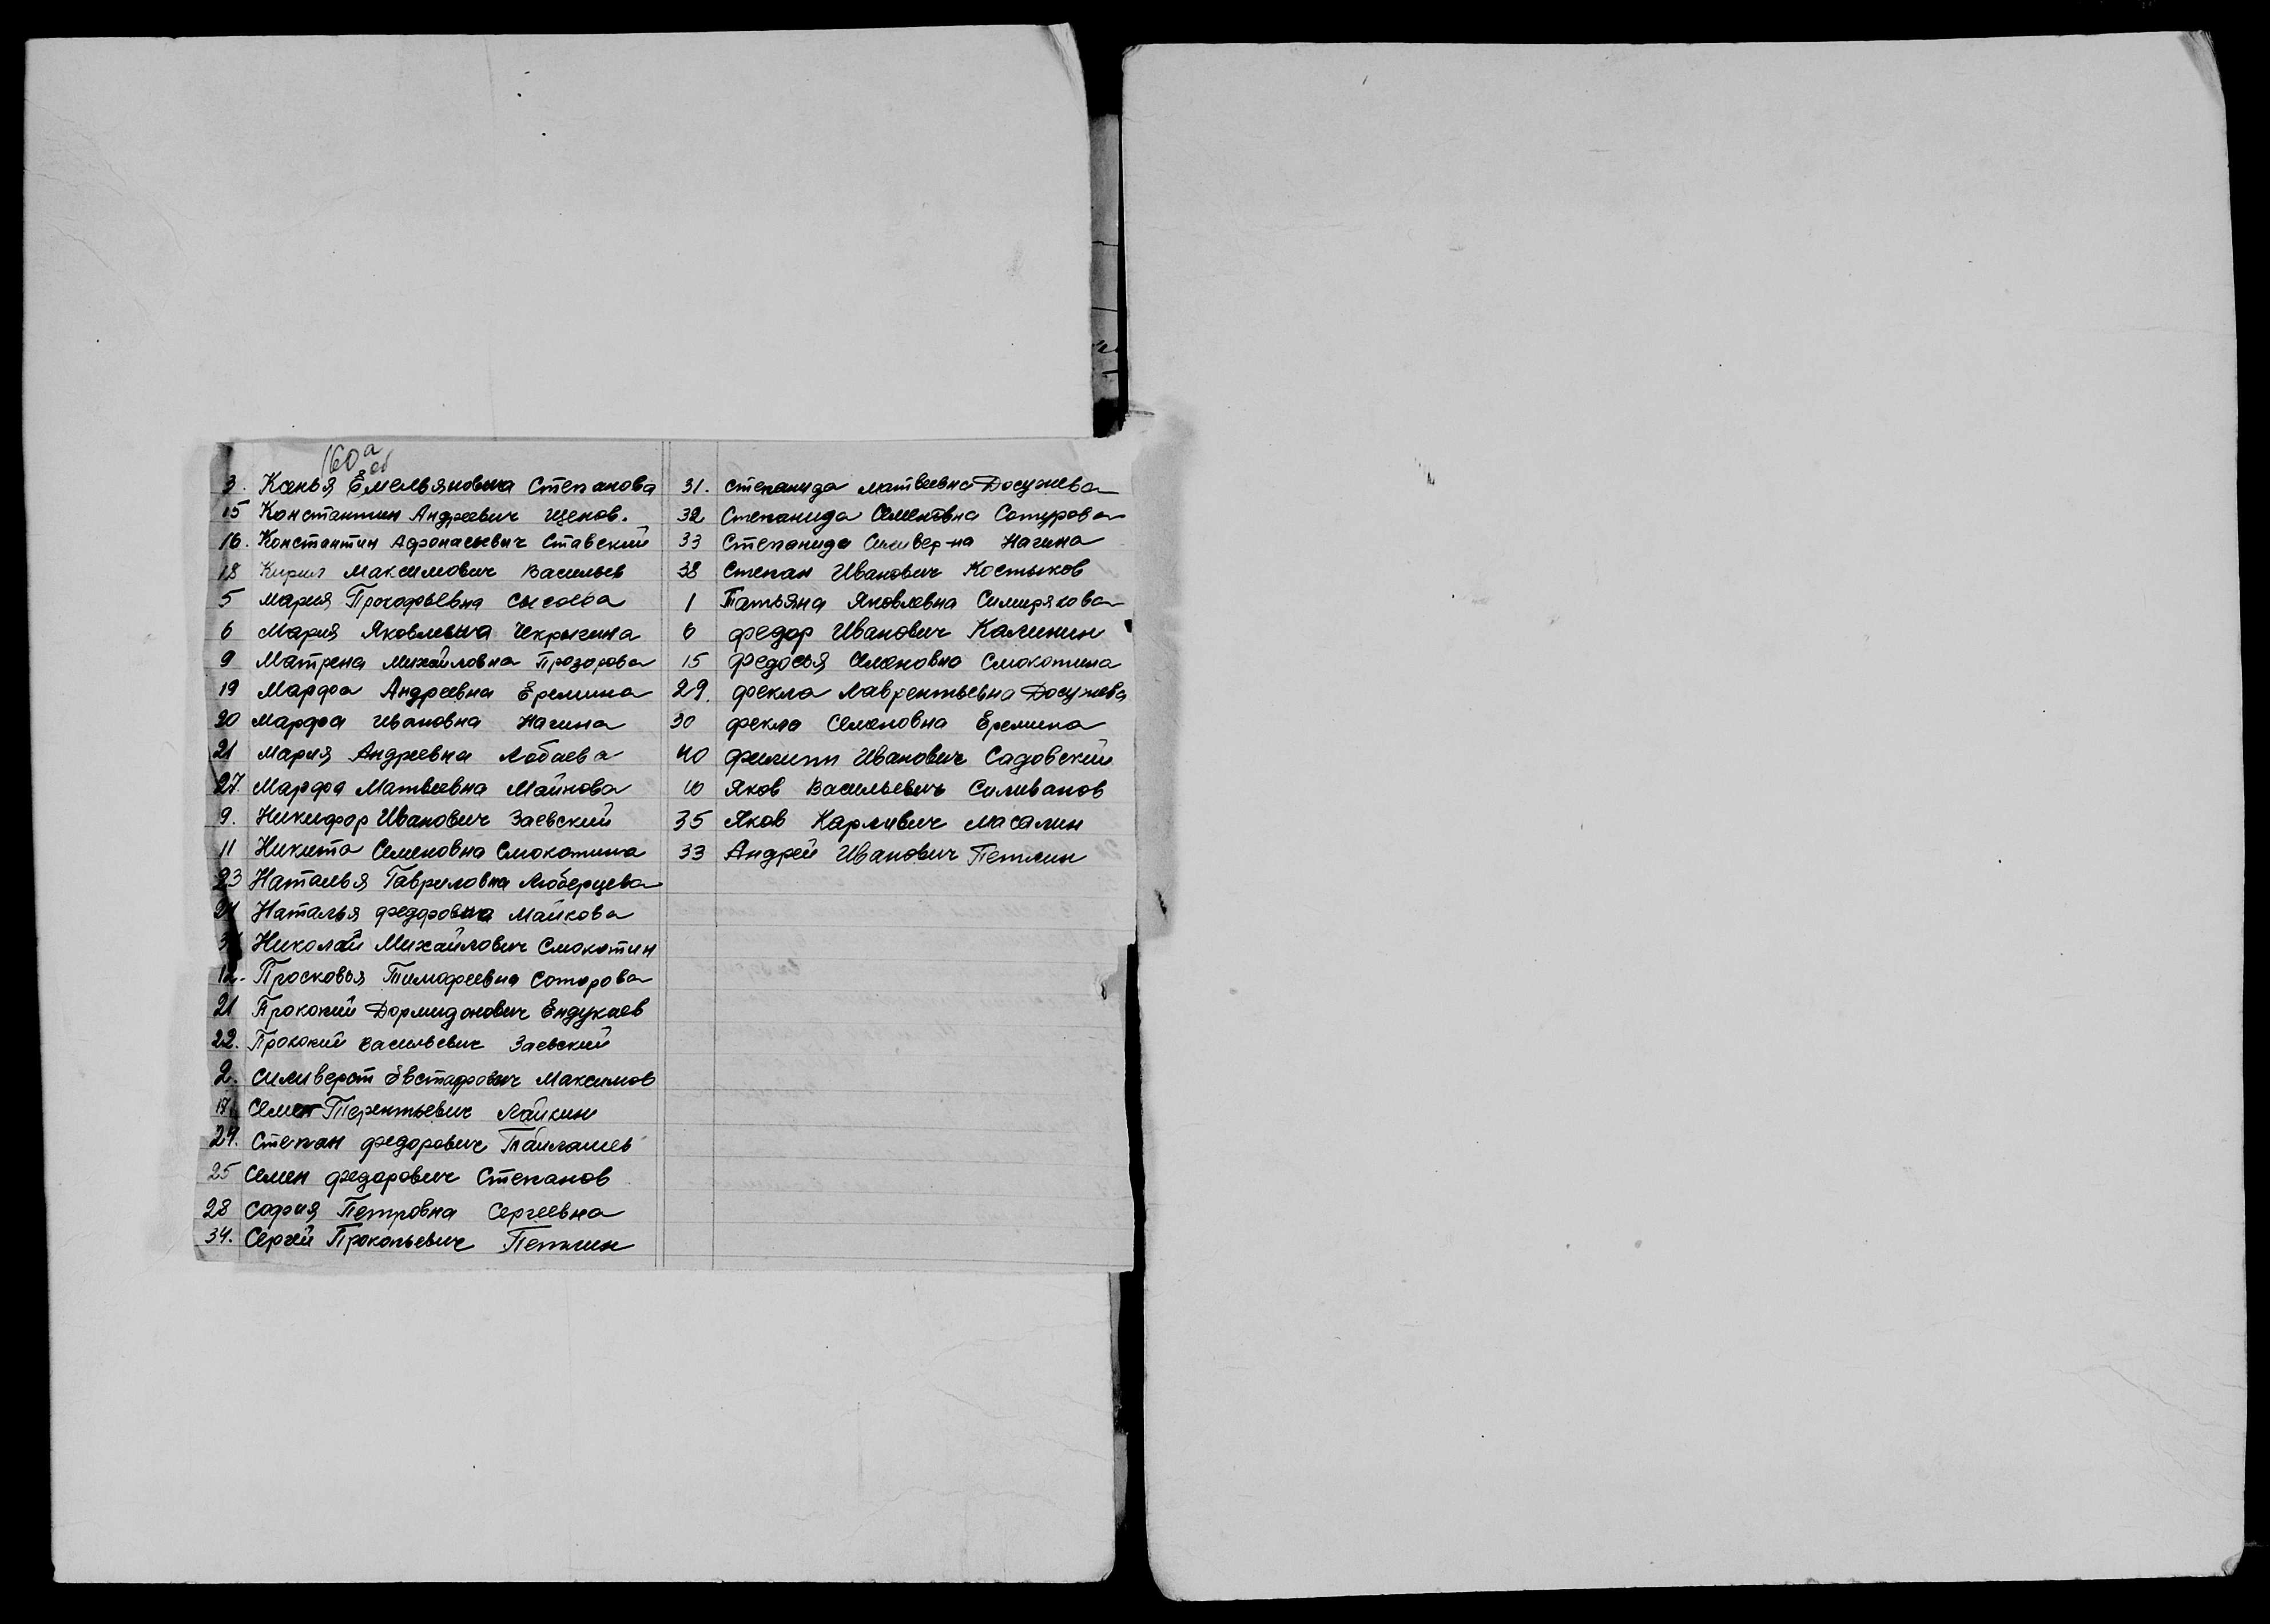 160а
об
3. Канья Емельяновна Степанова
15 Константин Андреевич Щеков.
16. Константин Афонасьевич Ставский
18 Кирил Максимович Васильев
5 Мария Прокофьевна Сысоева
6 Мария Яковлевна Чекрыгина
9 Матрена Михайловна Прозорова
19 Марфа Андреевна Еремина
20 Марфа Ивановна Нагина
21 Мария Андреевна Лобаева
27. Марфа Матвеевна Майкова
9. Никифор Иванович Заевский
11 Никита Семеновна Смокотина
23 Наталья Гавриловна Люберцева
24 Наталья Федоровна Майкова
Николай Михайлович Смокотин
12. Просковья Тимофеевна Соторова
21 Прокопий Дормидонович Ендукаев
22. Прокопий Васильевич Заевский
2. Силиверст Евстафович Максимов
17 Семен Терентьевич Лайкин
24. Степан Федорович Тайлашев
25 Семен Федорович Степанов
28 София Петровна Сергеевна
34. Сергей Прокопьевич Петлин
31. Степанида Матвеевна Досужева
32 Степанида Семеновна Сотурова
33 Степанида Силивер-на Нагина
38 Степан Иванович Костыков
1 Татьяна Яковлевна Симирякова
6 Федор Иванович Калинин
15 Федосья Семеновна Смокотина
29. Фекла Лаврентьевна Досужева
30 Фекла Семеновна Еремина
40 Филипп Иванович Садовский
10 Яков Васильевич Силиванов
35 Яков Карлович Масалин
33 Андрей Иванович Петлин